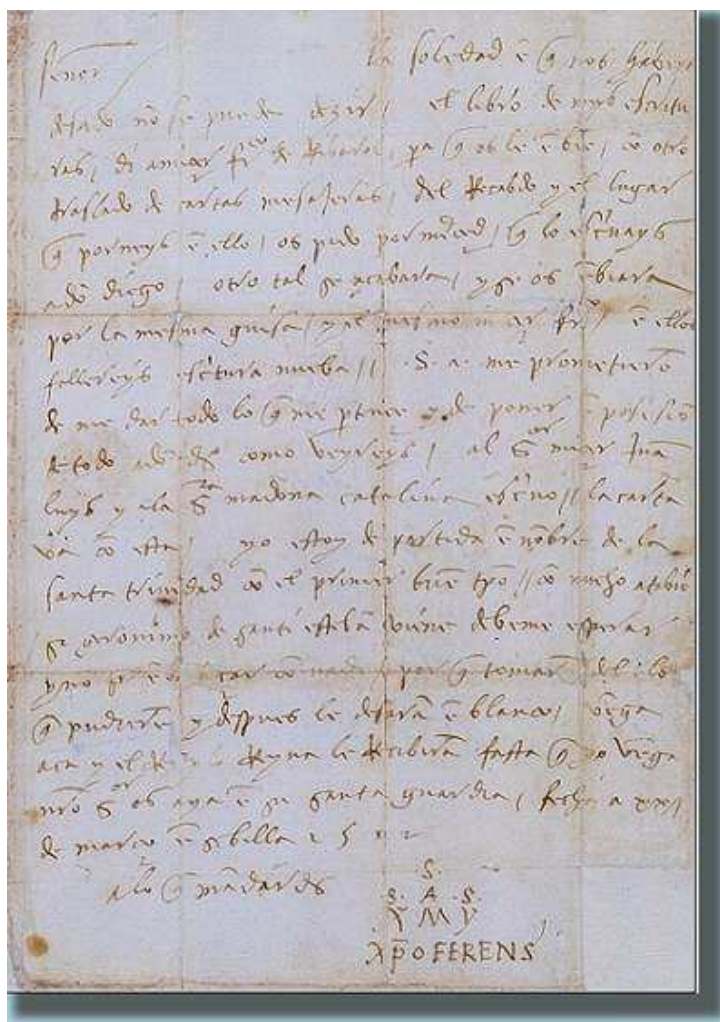 señor / la soledad ē q̃ nos habeys
desado nō se puede dezir / el libro de mys escritu
ras / di a miçer frco de Ribarol / pa q̃ os le ēbie / cō otro
traslado de cartas mesajeras / del Recabdo y el lugar
q̃ porneys ē ello / os pido por mrced / q̃ lo escrivays
a dō diego / otro tal se acabara / y se os ēbiara
por la mesma guisa / y el mesmo miçer frco / ē ello
fallereys escritura nueba // .S. a. me prometierō
de me dar todo lo q̃ me ptenece y de poner ē posesiō
de todo a dō dgo como veyreys / al Sor miçer Juā
luys y a la Sra madona catalina escrivo // la carta
va cō esta / yo estoy de partida ē nōbre de la
santa trinidad cō el primer buē tpō // cō mucho atabio
se geronimo de santi estebā viene debeme esperar
y no se ēbaraçar cō nada / por q̃ tomarā del lo
q̃ pudierē y despues le desarā ē blanco / vēga
aca y el Rey y la Reyna le Recibirā fasta q̃ yo vēga
nro Sor os aya ē su santa guardia / fecha a xxi
de março ē sebilla 1502
a lo q̃ mādardes
.S.
.S. A .S.
X M Y
Xp̄o FERENS /